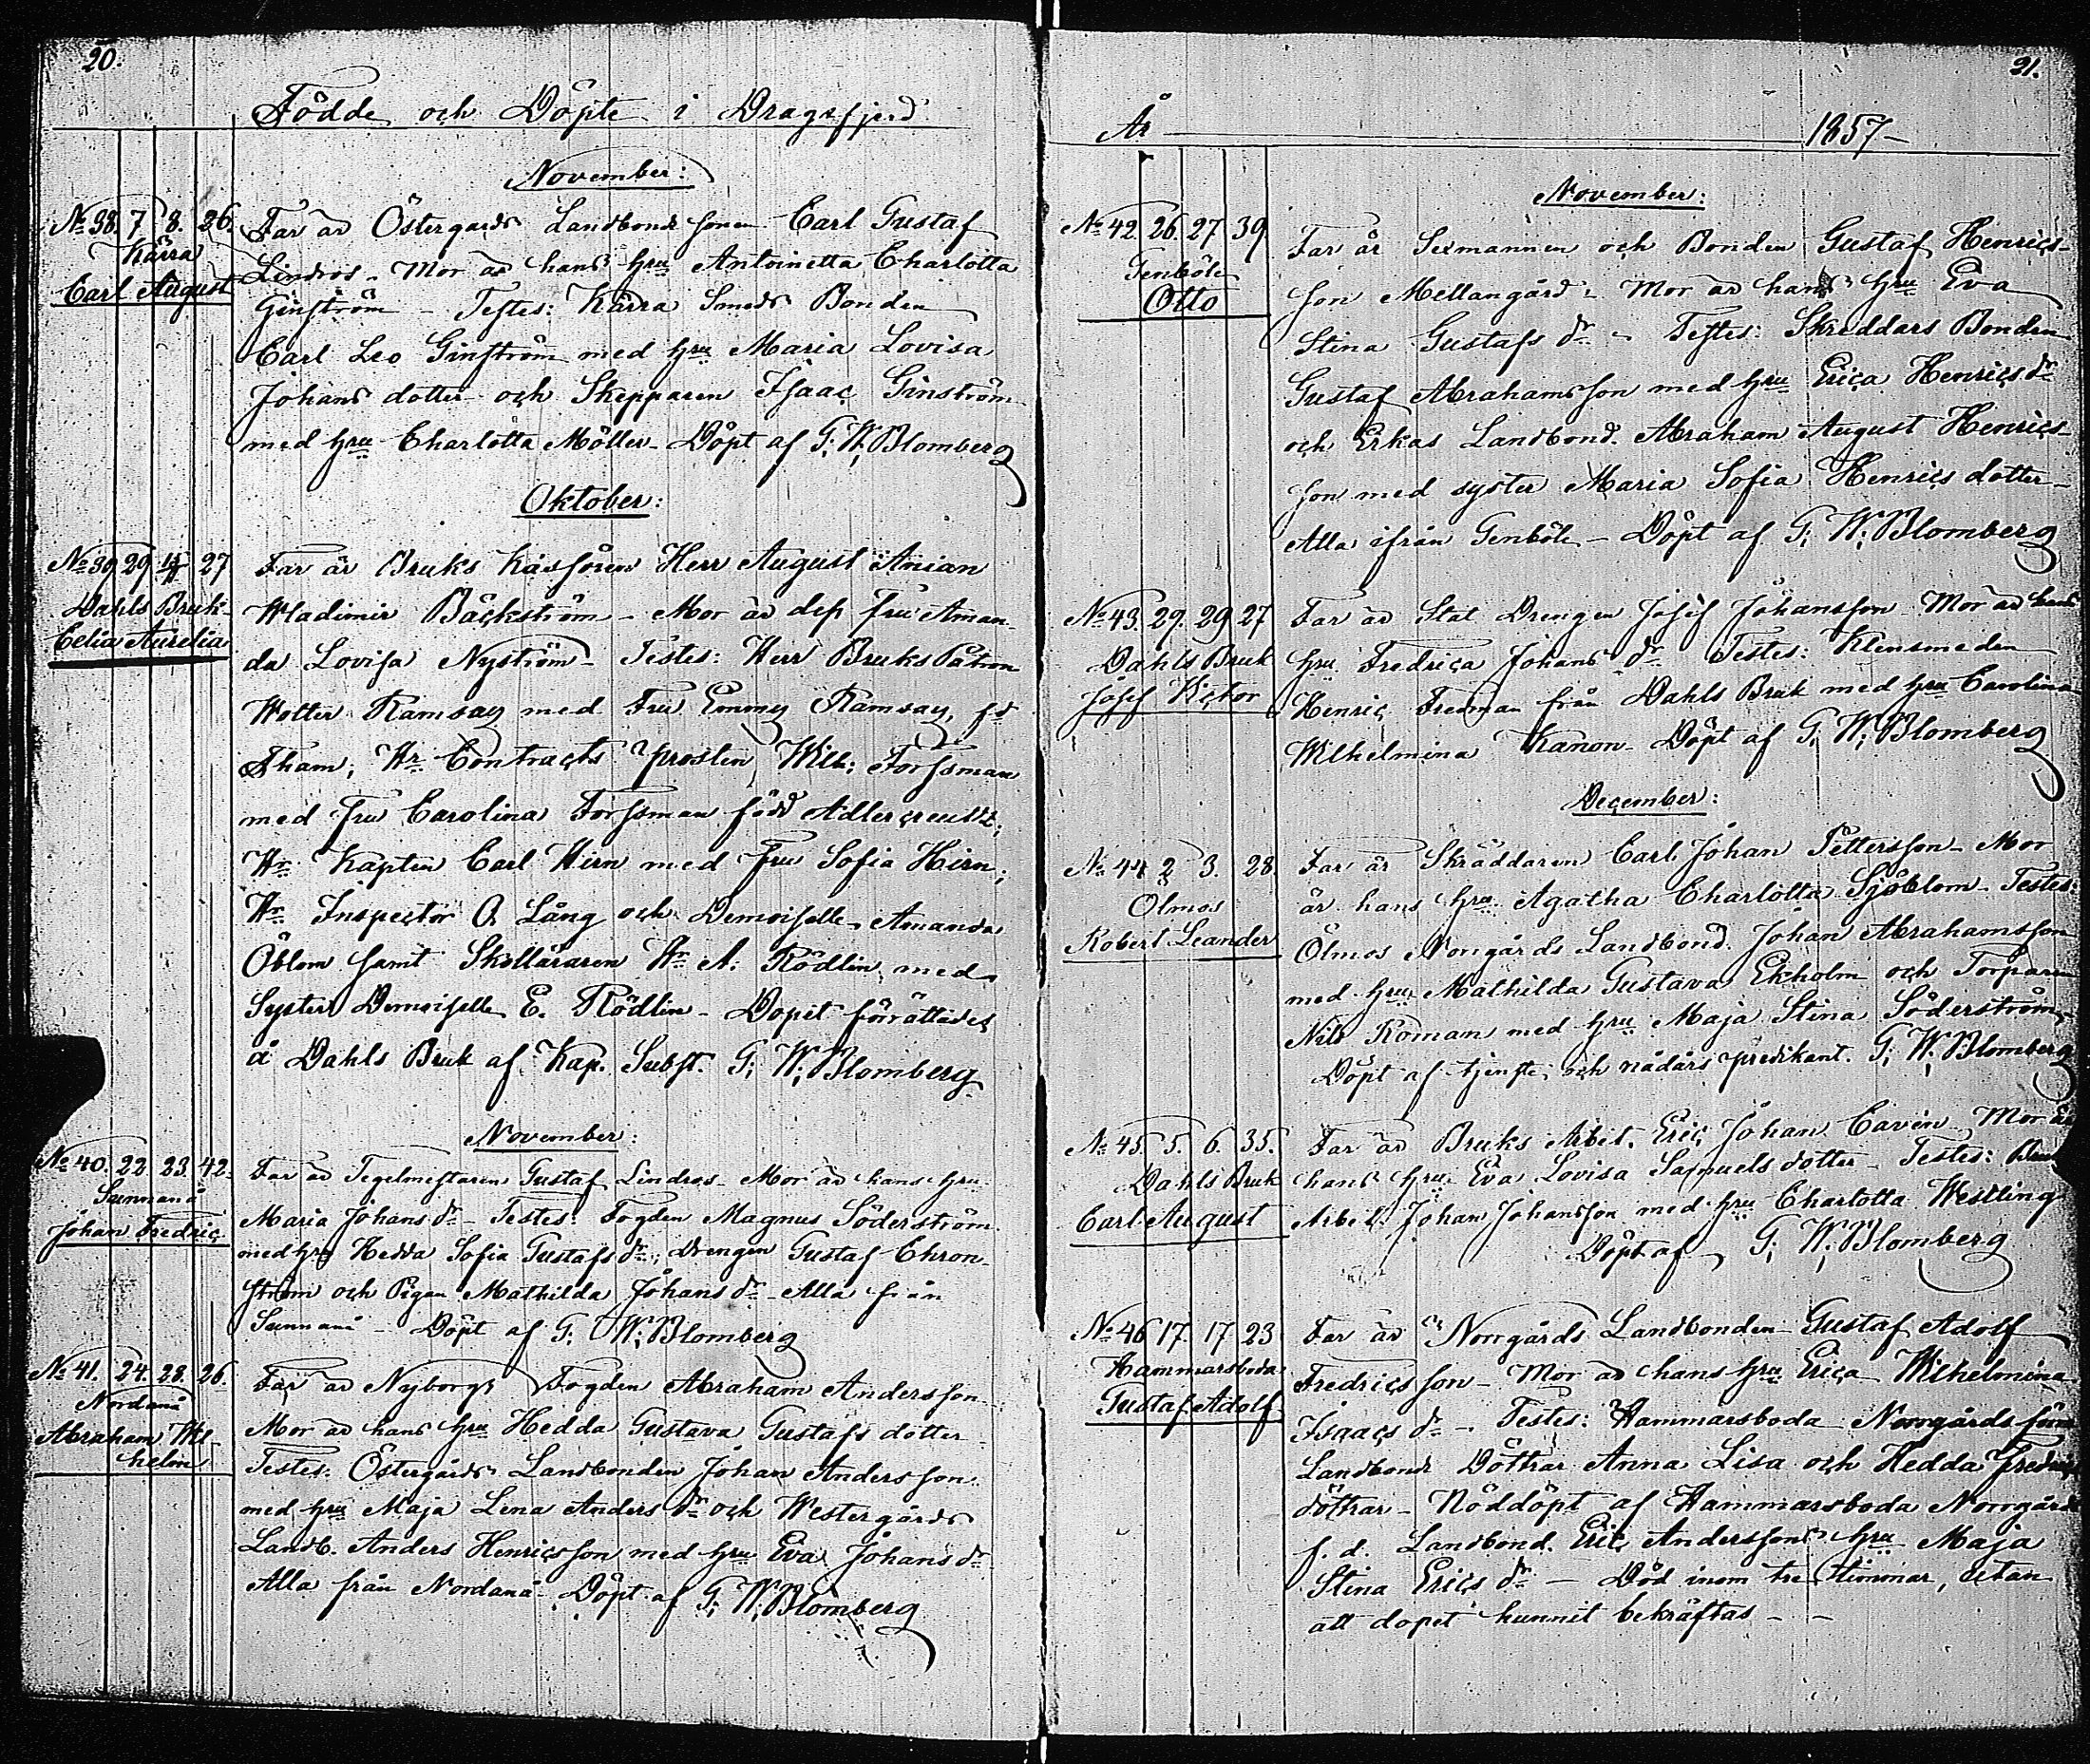 20.
Födde och Döpte i Dragsfjerd
November:
No 38. 7. 8. 26.
Kärra
Carl August
Far är Östergårds Landbonde sonen Carl Gustaf
Lindros - Mor är hans hru Antoinetta Charlotta
Ginström - Testes: Kärra Smeds Bonden
Carl Leo Ginström med hru Maria Lovisa
Johans dotter och Skepparen Isaac Ginström
med hru Charlotta Möller - Döpt af G. W. Blomberg
Oktober:
No 39 29 27
Dahls Bruk
Celia Aurelia
Far är Bruks Kassören Herr August Anian
Wladimir Bäckström - Mor är dess fru Aman-
da Lovisa Nyström - Testes: Herr Bruks Patron
Wolter Ramsay med Fru Emmy Ramsay, fd
Tham; Hr Contracts prosten Wilh: Forssman
med fru Carolina Forssman född Adlercreutz;
Hr Kapten Carl Hirn med fru Sofia Hirn;
Hr Inspector O. Lång och Demoiselle Amanda
Öblom samt Skolläraren Hr A. Rödlin med
Syster Demoiselle E. Rödlin - Dopet förrättades
å Dahls Bruk af Kap. Subst. G. W. Blomberg
November:
No 40. 22. 23. 42.
Sunnanå
Johan Fredric
Far är Tegelmestaren Gustaf Lindros - Mor är hans hru
Maria Johans dr - Testes: Fogden Magnus Söderström
med hru Hedda Sofia Gustafs dr; Drengen Gustaf Chron-
ström och Pigan Mathilda Johans dr - Alla från
Sunnanå - Döpt af G. W. Blomberg
No 41. 24. 28. 26.
Nordanå
Abraham Wil-
helm
Far är Nyborgs Fogden Abraham Andersson
Mor är hans hru Hedda Gustava Gustafs dotter -
Testes: Östergårds Landbonden Johan Andersson
med hru Maja Lena Anders dr och Westergårds
Landb. Anders Henricsson med hru Eva Johans dr
Alla från Nordanå - Döpt af G. W. Blomberg
21.
År 1857
November:
No 42. 26. 27 39.
Genböle
Otto
Far är Sexmannen och Bonden Gustaf Henrics-
son Mellangård - Mor är hans hru Eva
Stina Gustafs dr - Testes: Skreddars Bonden
Gustaf Abrahamsson med hru Erica Henrics dr
och Erkas Landbond. Abraham August Henrics-
son med syster Maria Sofia Henrics dotter -
Alla ifrån Genböle - Döpt af G. W. Blomberg
No 43. 29. 29 27
Dahls Bruk
Josef Victor
Far är Stat Drengen Josef Johansson Mor är hans
hru Fredrica Johans dr Testes: Klensmeden
Henric Fredman från Dahls Bruk med hru Carolina
Wilhelmina Kanon - Döpt af G. W. Blomberg
December:
No 44 2 3. 28.
Ölmos
Robert Leander
Far är Skräddaren Carl Johan Pettersson - Mor
är hans hru Agatha Charlotta Sjöblom - Testes:
Ölmos Norrgårds Landbond. Johan Abrahamsson
med hru Mathilda Gustava Ekholm och Torparen
Nils Roman med hru Maja Stina Söderström -
Döpt af tjenste- och nådårs predikant. G. W. Blomberg
No 45. 5. 6. 35.
Dahls Bruk
Carl August
Far är Bruks Arbet. Eric Johan Cavén Mor är
hans hru Eva Lovisa Samuels dotter - Testes: Bruks
Arbet. Johan Johansson med hru Charlotta Westling
Döpt af G. W. Blomberg
No 46 17. 17 23
Hammarsboda
Gustaf Adolf
Far är Norrgårds Landbonden Gustaf Adolf
Fredricsson - Mor är hans hru Erica Wilhelmina
Isaacs dr - Testes: Hammarsboda Norrgårds
Landbond Döttrar Anna Lisa och Hedda Fredrics
döttrar - Nöddöpt af Hammarsboda Norrgårds
f. d. Landbond. Eric Anderssons hru Maja
Stina Erics dr - Död inom tre timmar, utan
att dopet hunnit bekräftas -